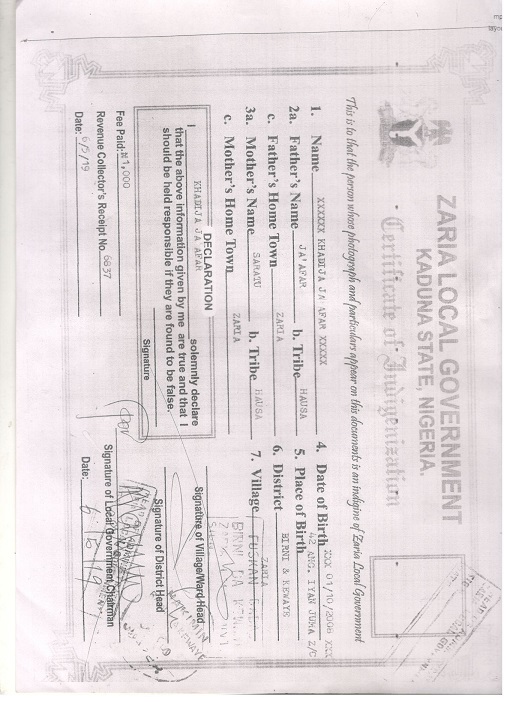 ZARIA LOCAL GOVERNMENT
KADUNA STATE, NIGERIA
Certificate of Indigenization
This is to that the person whose photograph and particulars appear on this documents is an indigine of Zaria Local Government
1. Name XXXXXX KHADIJA JA'AFAR XXXXX
2a. Father's Name JA'AFAR b. Tribe HAUSA
c. Father's Home Town ZARIA
3a. Mother's Name SARATU b. Tribe HAUSA
c. Mother's Home Town ZARIA
4. Date of Birth XXX 01/10/2008 XXX
5. Place of Birth 42 ANG. IYAN JUMA Z/C
6. District BIRNI & KEWAYE
7. Village ZARIA
DECLARATION
I KHADIJA JA'AFAR solemnly declare
that the above information given by me are true and that I
should be held responsible if they are found to be false.
Signature
Signature of Village/Ward Head
Signature of District Head
Fee Paid: ₦1,000
Revenue Collector's Receipt No. 6837
Date: 6/5/19
Signature of Local Government Chairman
Date: